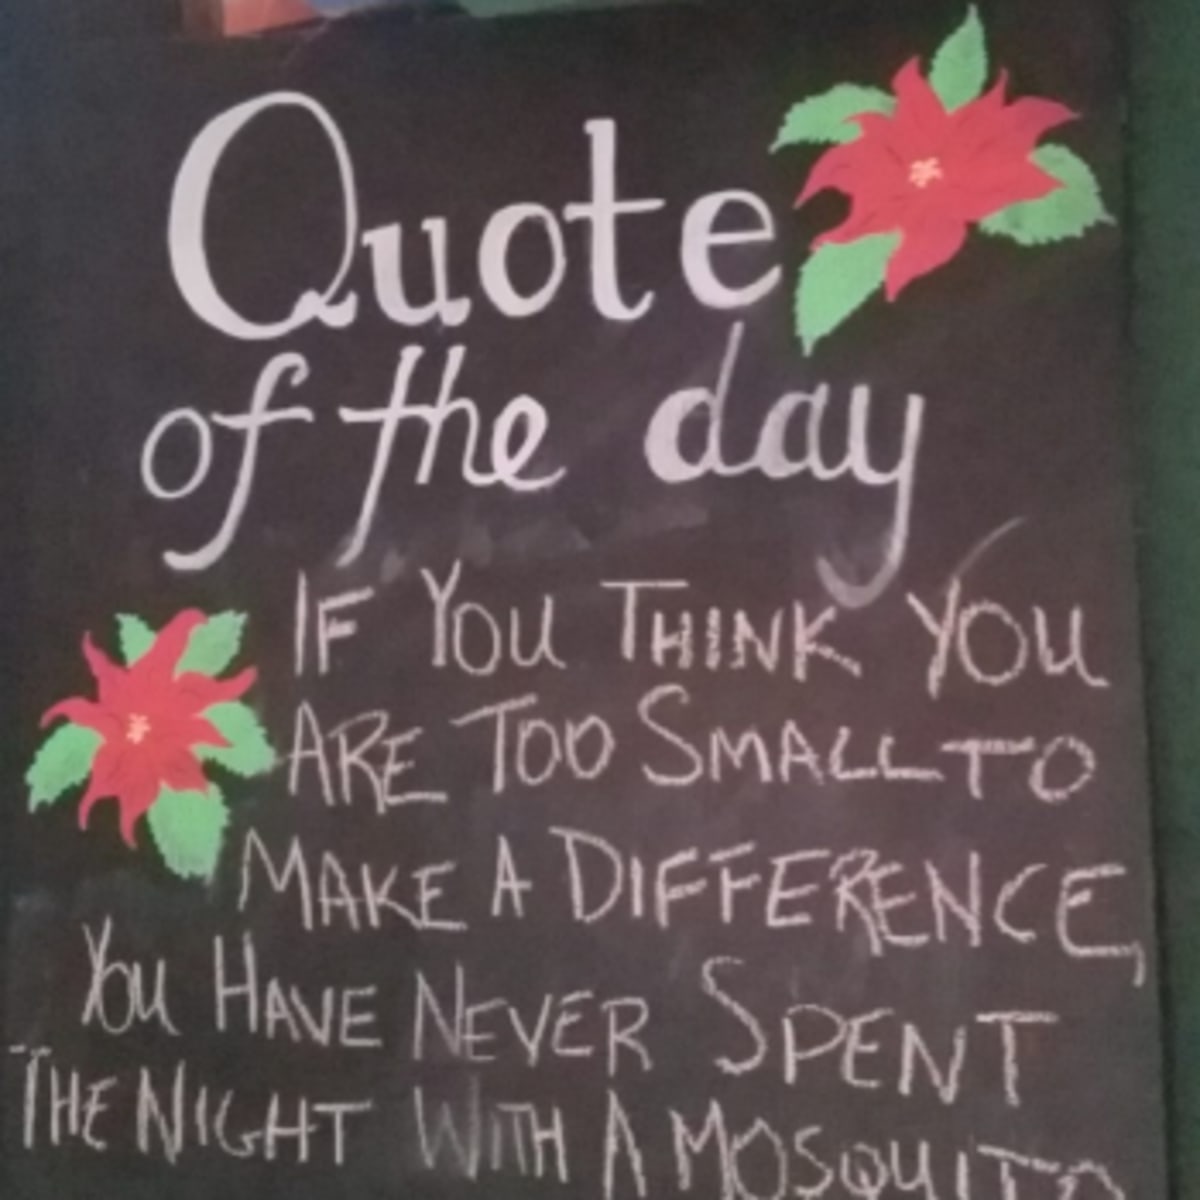 Quote
of the day
IF YOU THINK YOU
ARE TOO SMALL TO
MAKE A DIFFERENCE,
YOU HAVE NEVER SPENT
THE NIGHT WITH A MOSQUITO